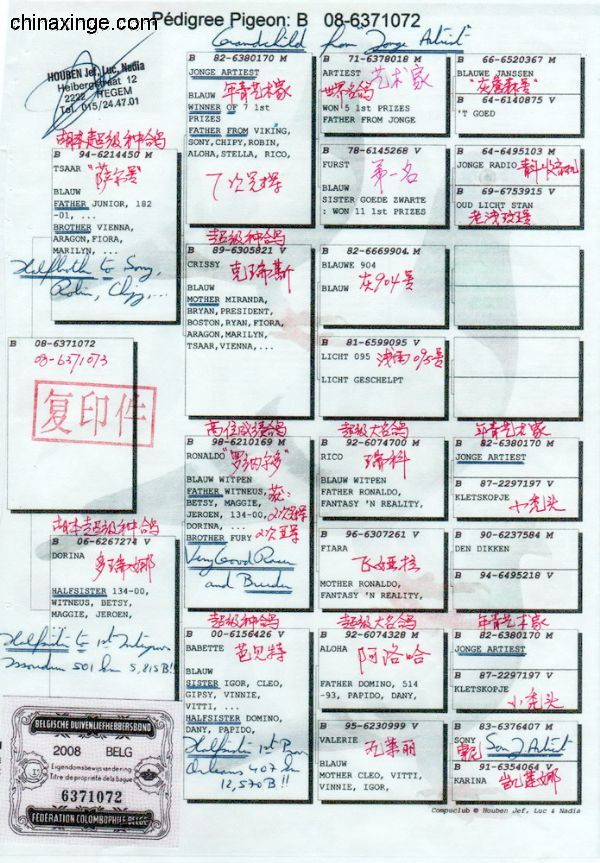 chinaxinge.com
Pédigree Pigeon: B 08-6371072
Grandchild from "Jonge Artiest"
HOUBEN Jef, Luc, Nadia
Heibergstraat 12
2222 ITEGEM
Tel. 015/24.47.01
胡本超级种鸽
B 94-6214450 M
TSAAR "萨尔"
BLAUW
FATHER JUNIOR, 182
-01, ...
BROTHER VIENNA,
ARAGON, FIORA,
MARILYN, ...
Halfbroth to Sony,
Robin, Chipy,...
B 08-6371072
08-6371073
复印件
胡本超级种鸽
B 06-6267274 V
DORINA
多瑞娜
HALFSISTER 134-00,
WITNEUS, BETSY,
MAGGIE, JEROEN,
5,815 B!!
BELGISCHE DUIVENLIEFHEBBERSBOND
2008 BELG
Eigendomsbewijs van de ring
Titre de propriété de la bague
6371072
FEDERATION COLOMBOPHILE BELGE
B 82-6380170 M
JONGE ARTIEST
BLAUW 年青艺术家
WINNER OF 7 1st
PRIZES
FATHER FROM VIKING,
SONY, CHIPY, ROBIN,
ALOHA, STELLA, RICO,
7次冠军
超级种鸽
B 89-6305821 V
CRISSY
克瑞斯
BLAUW
MOTHER MIRANDA,
BRYAN, PRESIDENT,
BOSTON, RYAN, FIORA,
ARAGON, MARILYN,
TSAAR, VIENNA, ...
高位成绩鸽
B 98-6210169 M
RONALDO "罗纳尔多"
BLAUW WITPEN
FATHER WITNEUS,
BETSY, MAGGIE,
JEROEN, 134-00, 2次冠军
DORINA, ...
BROTHER FURY 2次亚军
Very Good Racer
and Breeder
超级种鸽
B 00-6156426 V
BABETTE
芭贝特
BLAUW
SISTER IGOR, CLEO,
GIPSY, VINNIE,
VITTI, ...
HALFSISTER DOMINO,
DANY, PAPIDO,
Orleans 407 km
12,570 B!!
B 71-6378018 M
ARTIEST 艺术家
世界名鸽
WON 5 1st PRIZES
FATHER FROM JONGE
B 78-6145268 V
FURST
第一名
BLAUW
SISTER GOEDE ZWARTE
: WON 11 1st PRIZES
B 82-6669904 M
BLAUWE 904
灰904号
BLAUW
B 81-6599095 V
LICHT 095 浅雨095号
LICHT GESCHELPT
超级大名鸽
B 92-6074700 M
RICO
瑞科
BLAUW WITPEN
FATHER RONALDO,
FANTASY 'N REALITY,
B 96-6307261 V
FIARA
飞娅拉
MOTHER RONALDO,
FANTASY 'N REALITY,
超级大名鸽
B 92-6074328 M
ALOHA
阿洛哈
FATHER DOMINO, 514
-93, PAPIDO, DANY,
B 95-6230999 V
VALERIE
瓦莱丽
BLAUW
MOTHER CLEO, VITTI,
VINNIE, IGOR,
B 66-6520367 M
BLAUWE JANSSEN
B 64-6140875 V
'T GOED
B 64-6495103 M
JONGE RADIO
B 69-6753915 V
OUD LICHT STAN
B
B
B
B
年青艺术家
B 82-6380170 M
JONGE ARTIEST
B 87-2297197 V
KLETSKOPJE
小秃头
B 90-6237584 M
DEN DIKKEN
B 94-6495218 V
年青艺术家
B 82-6380170 M
JONGE ARTIEST
B 87-2297197 V
KLETSKOPJE
小秃头
B 83-6376407 M
SONY
Son J Artiest
B 91-6354064 V
KARINA 凯莲娜
Compuclub © Houben Jef, Luc & Nadia